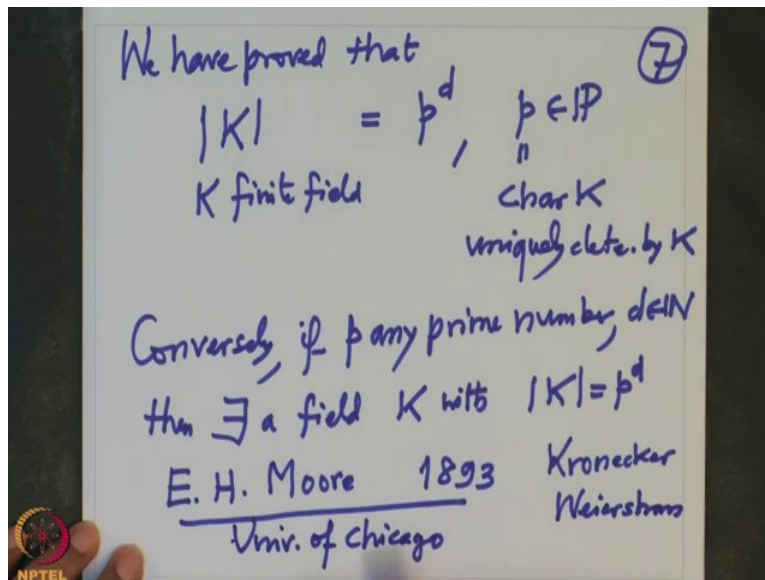 We have proved that
⑦
|K| = p^d, p ∈ ℙ
K finite field
"
char K
uniquely dete. by K
Conversely, if p any prime number, d∈ℕ
then ∃ a field K with |K| = p^d
E. H. Moore 1893
Kronecker
Weierstrass
Univ. of Chicago
NPTEL